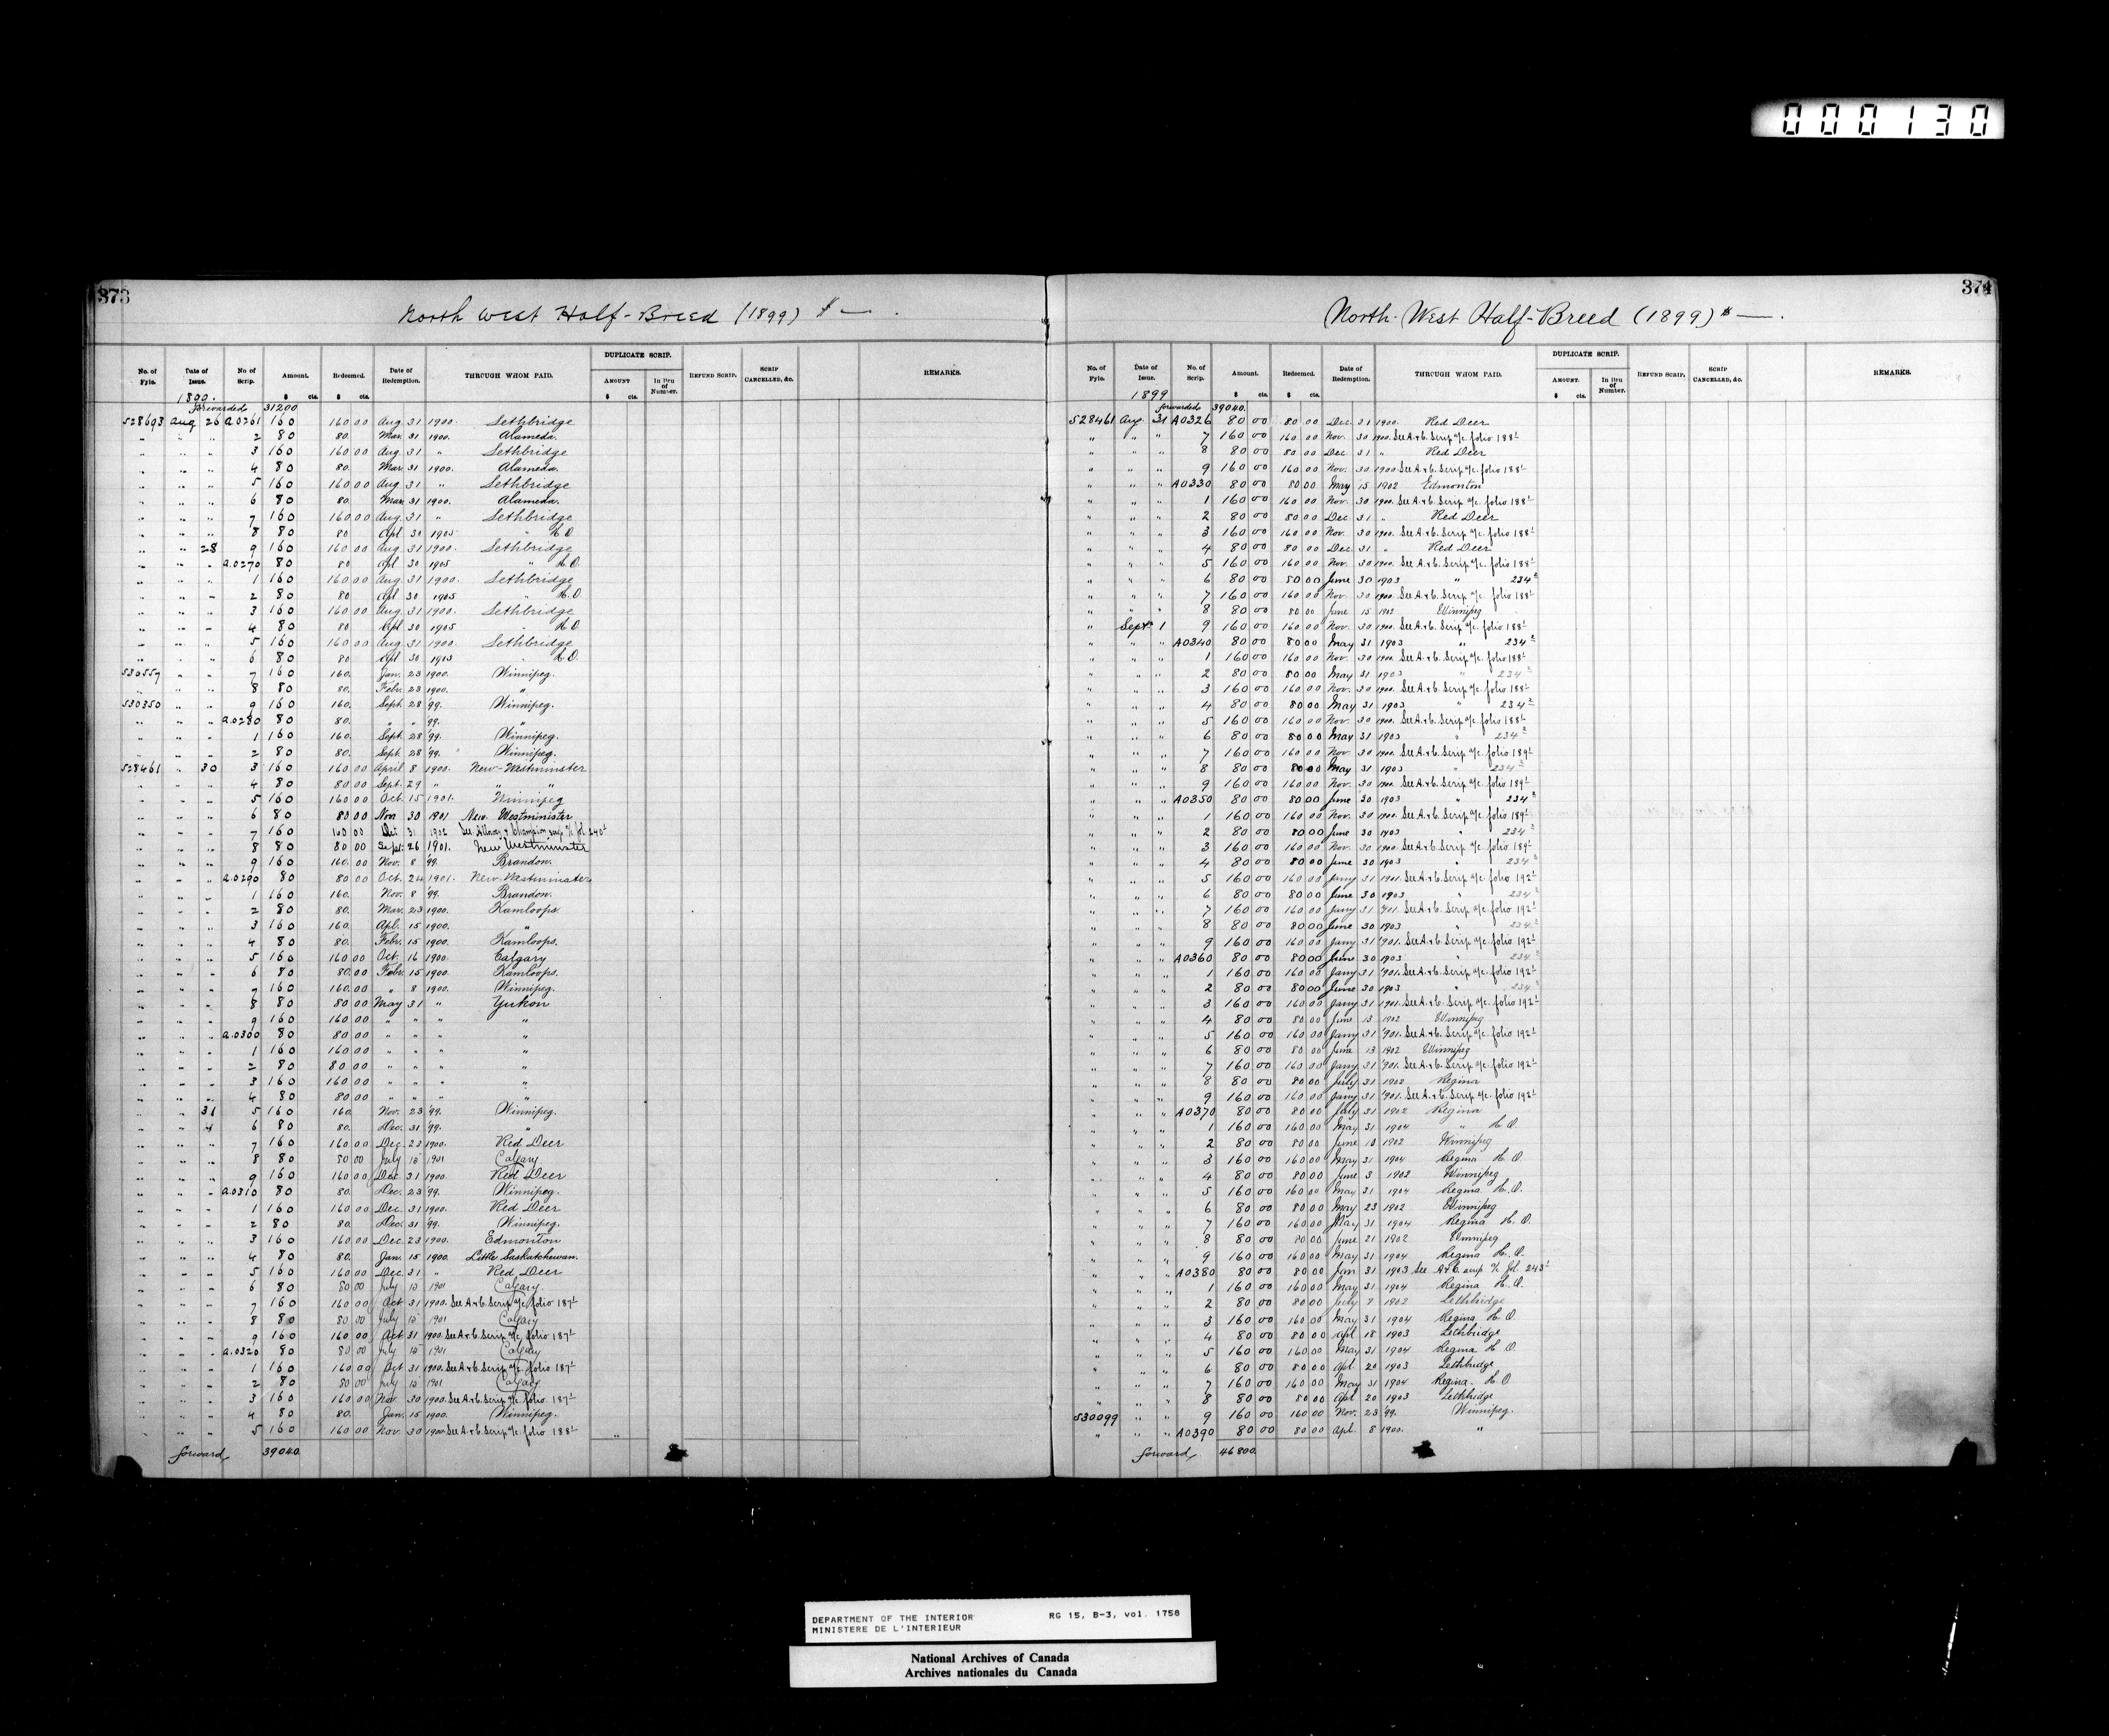 000130
373
North West Half-Breed (1899) $ —.
No. of Fyle. Date of Issue. No of Scrip. Amount. Redeemed. Date of Redemption. THROUGH WHOM PAID. DUPLICATE SCRIP. AMOUNT In lieu of Number. REFUND SCRIP. SCRIP CANCELLED, &c. REMARKS.
$ cts. $ cts. $ cts.
1899.
Forwarded 31200
528693 Aug 26 A.0261 160 160 00 Aug. 31 1900. Lethbridge
" " " 2 80 80. Mar. 31 1900. Alameda.
" " " 3 160 160 00 Aug. 31 " Lethbridge
" " " 4 80 80. Mar. 31 1900. Alameda.
" " " 5 160 160 00 Aug. 31 " Lethbridge
" " " 6 80 80. Mar. 31 1900. Alameda.
" " " 7 160 160 00 Aug. 31 " Lethbridge
" " " 8 80 80 Apl 30 1905 " H.O
" " 28 9 160 160 00 Aug. 31 1900. Lethbridge
" " " A.0270 80 80 Apl 30 1905 " H.O.
" " " 1 160 160 00 Aug. 31 1900. Lethbridge
" " " 2 80 80 Apl 30 1905 " H.O
" " " 3 160 160 00 Aug. 31 1900. Lethbridge
" " " 4 80 80 Apl 30 1905 " H.O.
" " " 5 160 160 00 Aug. 31 1900. Lethbridge
" " " 6 80 80 Apl 30 1905 " H.O.
530557 " " 7 160 160. Jan. 23 1900. Winnipeg.
" " " 8 80 80. Febr. 23 1900. "
530350 " " 9 160 160. Sept. 28 '99. Winnipeg.
" " " A.0280 80 80. " " '99. "
" " " 1 160 160. Sept. 28 '99. Winnipeg.
" " " 2 80 80. Sept. 28 '99. Winnipeg.
528461 " 30 3 160 160 00 April 8 1900. New-Westminster
" " " 4 80 80 00 Sept. 29 " " "
" " " 5 160 160 00 Oct. 15 1901. Winnipeg
" " " 6 80 80 00 Nov 30 1901 New Westminister
" " " 7 160 160 00 Oct 31 1902 See Alloway & Champion scrip a/c fol 240½
" " " 8 80 80 00 Sept. 26 1901. New Westminister
" " " 9 160 160. 00 Nov. 8 '99. Brandon.
" " " A.0290 80 80 00 Oct. 24 1901. New-Westminster
" " " 1 160 160. Nov. 8 '99. Brandon.
" " " 2 80 80. Mar. 23 1900. Kamloops.
" " " 3 160 160. Apl. 15 1900. "
" " " 4 80 80. Febr. 15 1900. Kamloops.
" " " 5 160 160 00 Oct. 16 1900. Calgary
" " " 6 80 80.00 Febr. 15 1900. Kamloops.
" " " 7 160 160.00 " 8 1900. Winnipeg.
" " " 8 80 80 00 May 31 " Yukon
" " " 9 160 160 00 " " " "
" " " A.0300 80 80 00 " " " "
" " " 1 160 160 00 " " " "
" " " 2 80 80 00 " " " "
" " " 3 160 160 00 " " " "
" " " 4 80 80 00 " " " "
" " 31 5 160 160. Nov. 23 '99. Winnipeg.
" " " 6 80 80. Dec. 31 '99. "
" " " 7 160 160 00 Dec. 23 1900. Red Deer
" " " 8 80 80 00 July 15 1901 Calgary
" " " 9 160 160 00 Dec. 31 1900. Red Deer
" " " A.0310 80 80. Dec. 23 '99. Winnipeg.
" " " 1 160 160 00 Dec. 31 1900. Red Deer
" " " 2 80 80. Dec. 31 '99. Winnipeg.
" " " 3 160 160 00 Dec. 23 1900. Edmonton
" " " 4 80 80. Jan. 15 1900. Little Saskatchewan.
" " " 5 160 160 00 Dec. 31 " Red Deer
" " " 6 80 80 00 July 15 1901 Calgary
" " " 7 160 160 00 Oct. 31 1900. See A & C. Scrip a/c folio 187½
" " " 8 80 80 00 July 15 1901 Calgary
" " " 9 160 160 00 Oct 31 1900. See A & C. Scrip a/c folio 187½
" " " A.0320 80 80 00 July 15 1901 Calgary
" " " 1 160 160 00 Oct 31 1900. See A & C. Scrip a/c. folio 187½
" " " 2 80 80 00 July 15 1901 Calgary
" " " 3 160 160 00 Nov. 30 1900. See A & C. Scrip a/c. folio 187½
" " " 4 80 80. Jan. 15 1900. Winnipeg.
" " " 5 160 160 00 Nov. 30 1900. See A & C. Scrip a/c. folio 188½
forward 39040.
374
North-West Half-Breed (1899) $ —.
No. of Fyle. Date of Issue. No of Scrip. Amount. Redeemed. Date of Redemption. THROUGH WHOM PAID. DUPLICATE SCRIP. AMOUNT. In lieu of Number. REFUND SCRIP. SCRIP CANCELLED, &c. REMARKS.
$ cts. $ cts. $ cts.
1899
forwarded 39040.
528461 Aug. 31 A0326 80 00 80 00 Dec. 31 1900. Red Deer
" " " 7 160 00 160 00 Nov. 30 1900. See A & C. Scrip a/c. folio 188½
" " " 8 80 00 80 00 Dec. 31 " Red Deer
" " " 9 160 00 160 00 Nov. 30 1900 See A & C. Scrip a/c. folio 188½
" " " A0330 80 00 80 00 May 15 1902 Edmonton
" " " 1 160 00 160 00 Nov. 30 1900. See A & C. Scrip a/c. folio 188½
" " " 2 80 00 80 00 Dec. 31 " Red Deer
" " " 3 160 00 160 00 Nov. 30 1900. See A & C. Scrip a/c. folio 188½
" " " 4 80 00 80 00 Dec. 31 " Red Deer
" " " 5 160 00 160 00 Nov. 30 1900. See A & C. Scrip a/c. folio 188½
" " " 6 80 00 80 00 June 30 1903 " 234½
" " " 7 160 00 160 00 Nov. 30 1900. See A & C. Scrip a/c. folio 188½
" " " 8 80 00 80 00 June 15 1902 Winnipeg
" Sept. 1 9 160 00 160 00 Nov. 30 1900. See A & C. Scrip a/c. folio 188½
" " " A0340 80 00 80 00 May 31 1903 " 234½
" " " 1 160 00 160 00 Nov. 30 1900. See A & C. Scrip a/c. folio 188½
" " " 2 80 00 80 00 May 31 1903 " 234½
" " " 3 160 00 160 00 Nov. 30 1900. See A & C. Scrip a/c. folio 188½
" " " 4 80 00 80 00 May 31 1903 " 234½
" " " 5 160 00 160 00 Nov. 30 1900. See A & C. Scrip a/c. folio 188½
" " " 6 80 00 80 00 May 31 1903 " 234½
" " " 7 160 00 160 00 Nov. 30 1900. See A & C. Scrip a/c. folio 189½
" " " 8 80 00 80 00 May 31 1903 " 234½
" " " 9 160 00 160 00 Nov. 30 1900. See A & C. Scrip a/c. folio 189½
" " " A0350 80 00 80 00 June 30 1903 " 234½
" " " 1 160 00 160 00 Nov. 30 1900. See A & C. Scrip a/c. folio 189½
" " " 2 80 00 80 00 June 30 1903 " 234½
" " " 3 160 00 160 00 Nov. 30 1900. See A & C. Scrip a/c. folio 189½
" " " 4 80 00 80 00 June 30 1903 " 234½
" " " 5 160 00 160 00 Jany 31 1901. See A & C. Scrip a/c. folio 192½
" " " 6 80 00 80 00 June 30 1903 " 234½
" " " 7 160 00 160 00 Jany 31 '901. See A & C. Scrip a/c. folio 192½
" " " 8 80 00 80 00 June 30 1903 " 234½
" " " 9 160 00 160 00 Jany 31 '901. See A & C. Scrip a/c. folio 192½
" " " A0360 80 00 80 00 June 30 1903 " 234½
" " " 1 160 00 160 00 Jany 31 '901. See A & C. Scrip a/c. folio 192½
" " " 2 80 00 80 00 June 30 1903 " 234½
" " " 3 160 00 160 00 Jany 31 1901. See A & C. Scrip a/c. folio 192½
" " " 4 80 00 80 00 June 13 1902 Winnipeg
" " " 5 160 00 160 00 Jany 31 '901. See A & C. Scrip a/c. folio 192½
" " " 6 80 00 80 00 June 13 1902 Winnipeg
" " " 7 160 00 160 00 Jany 31 '901. See A & C. Scrip a/c. folio 192½
" " " 8 80 00 80 00 July 31 1902 Regina
" " " 9 160 00 160 00 Jany 31 '901. See A & C. Scrip a/c. folio 192½
" " " A0370 80 00 80 00 July 31 1902 Regina
" " " 1 160 00 160 00 May 31 1904 " H.O.
" " " 2 80 00 80 00 June 10 1902 Winnipeg
" " " 3 160 00 160 00 May 31 1904 Regina H.O.
" " " 4 80 00 80 00 June 3 1902 Winnipeg
" " " 5 160 00 160 00 May 31 1904 Regina H.O.
" " " 6 80 00 80 00 May 23 1902 Winnipeg
" " " 7 160 00 160 00 May 31 1904 Regina H.O.
" " " 8 80 00 80 00 June 21 1902 Winnipeg
" " " 9 160 00 160 00 May 31 1904 Regina H.O.
" " " A0380 80 00 80 00 Jan 31 1903 See A & C. scrip a/c fol. 243½
" " " 1 160 00 160 00 May 31 1904 Regina H.O.
" " " 2 80 00 80 00 July 7 1902 Lethbridge
" " " 3 160 00 160 00 May 31 1904 Regina H.O.
" " " 4 80 00 80 00 Apl 18 1903 Lethbridge
" " " 5 160 00 160 00 May 31 1904 Regina H.O.
" " " 6 80 00 80 00 Apl. 20 1903 Lethbridge
" " " 7 160 00 160 00 May 31 1904 Regina. H.O
" " " 8 80 00 80 00 Apl 20 1903 Lethbridge
530099 " " 9 160 00 160 00 Nov. 23 '99. Winnipeg.
" " " A0390 80 00 80 00 Apl. 8 1900. "
forward 46800.
DEPARTMENT OF THE INTERIOR RG 15, B-3, vol. 1758
MINISTERE DE L'INTERIEUR
National Archives of Canada
Archives nationales du Canada